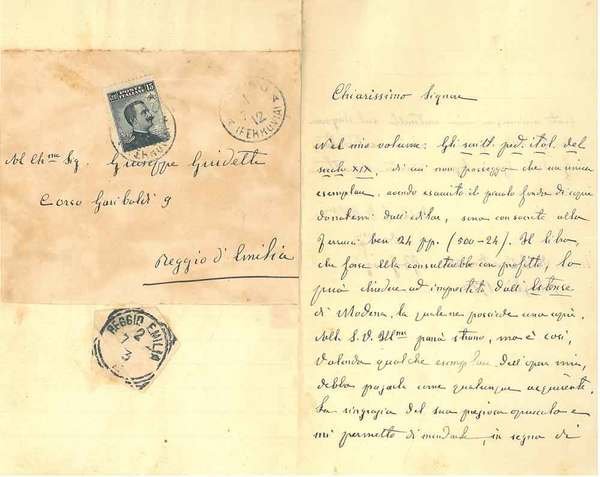 POSTE ITALIANE
15
12
(FERROVIA)
Al Ch.mo Sig. Giuseppe Guidetti
Corso Garibaldi 9
Reggio d'Emilia
REGGIO EMILIA
Chiarissimo Signore
Nel mio volume: Gli scritt. ped. ital. del
secolo XIX, di cui non posseggo che un'unica
esemplare, avendo esaurito il piccolo fondo di copie
donatemi dall'editore, sono consacrate alla
Ferrucci ben 24 pp. (500-24). Il libro,
che forse Ella consulterebbe con profitto, lo
può chiedere ad imprestito dall'Estense
di Modena, la quale ne possiede una copia.
Alla S. V. Ill.ma parrà strano, ma è così,
volendo qualche esemplare dell'opera mia,
debbo pagarlo come qualunque acquirente.
La ringrazio del suo pregevole opuscolo e
mi permetto di mandarle, in segno di